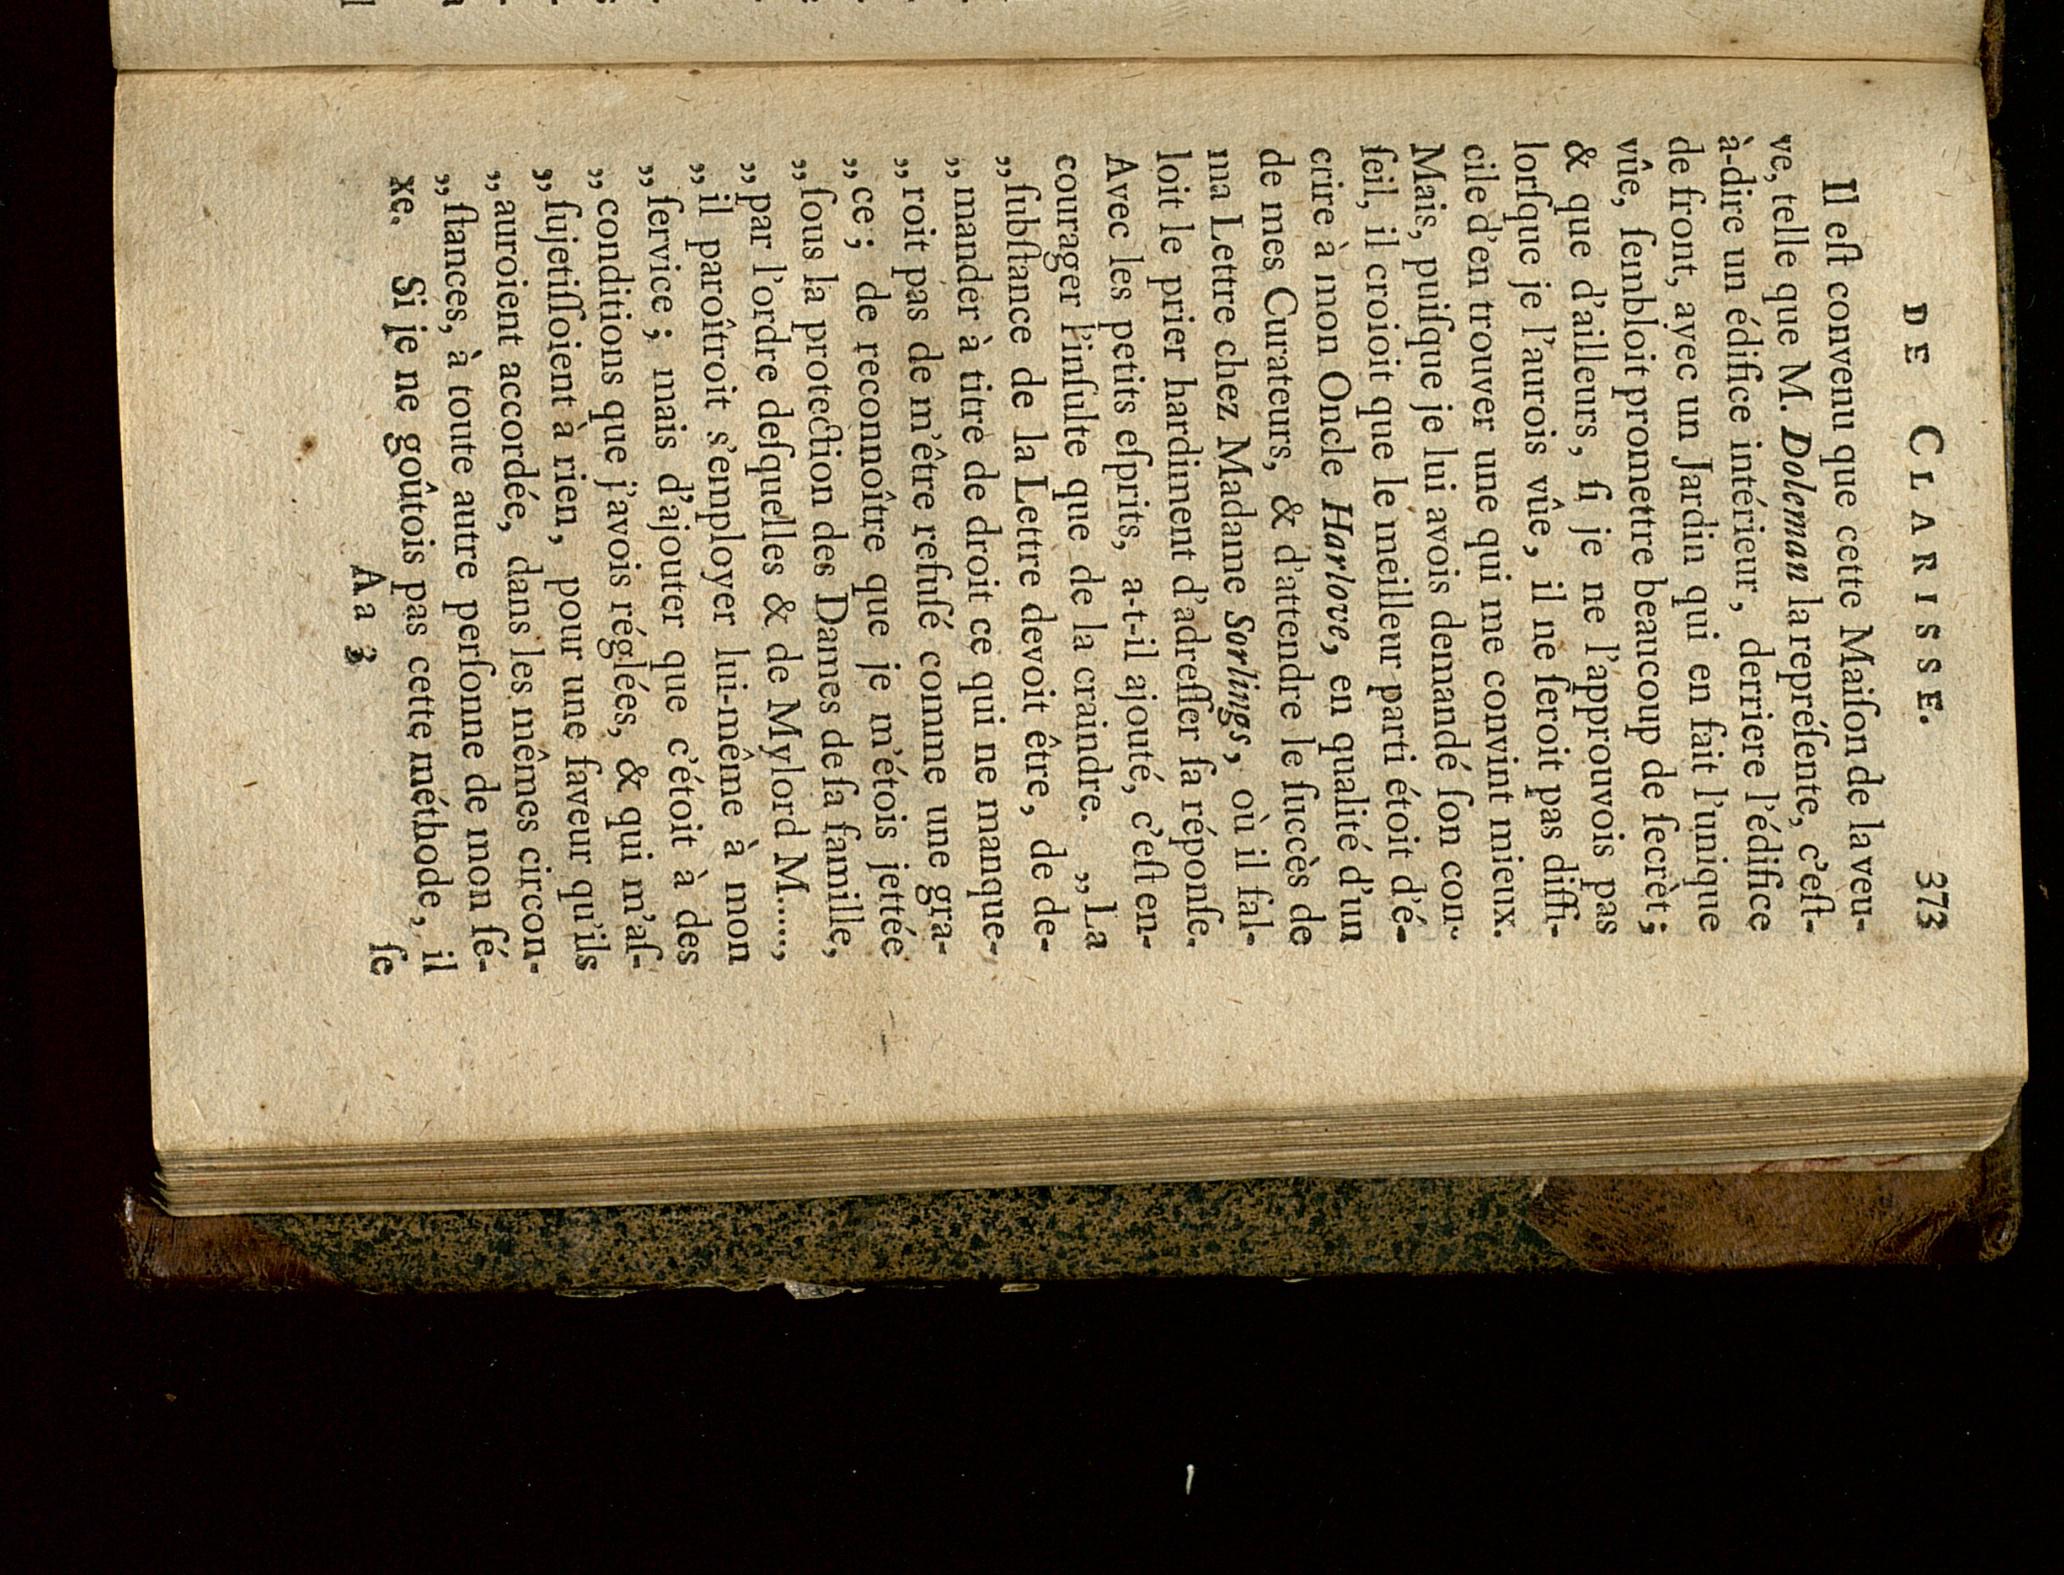 DE CLARISSE. 373
Il eſt convenu que cette Maiſon de la veu-
ve, telle que M. Doleman la repréſente, c'eſt-
à-dire un édifice intérieur, derriere l'édifice
de front, avec un Jardin qui en fait l'unique
vûe, ſembloit promettre beaucoup de ſecrèt;
& que d'ailleurs, ſi je ne l'approuvois pas
lorſque je l'aurois vûe, il ne ſeroit pas diffi-
cile d'en trouver une qui me convint mieux.
Mais, puiſque je lui avois demandé ſon con-
ſeil, il croioit que le meilleur parti étoit d'é-
crire à mon Oncle Harlove, en qualité d'un
de mes Curateurs, & d'attendre le ſuccès de
ma Lettre chez Madame Sorlings, où il fal-
loit le prier hardiment d'adreſſer ſa réponſe.
Avec les petits eſprits, a-t-il ajouté, c'eſt en-
courager l'inſulte que de la craindre. „La
„ſubſtance de la Lettre devoit être, de de-
„mander à titre de droit ce qui ne manque-
„roit pas de m'être refuſé comme une gra-
„ce; de reconnoître que je m'étois jettée
„ſous la protection des Dames de ſa famille,
„par l'ordre deſquelles & de Mylord M.....,
„il paroîtroit s'employer lui-même à mon
„ſervice; mais d'ajouter que c'étoit à des
„conditions que j'avois réglées, & qui m'aſ-
„ſujetiſſoient à rien, pour une faveur qu'ils
„auroient accordée, dans les mêmes circon-
„ſtances, à toute autre perſonne de mon ſé-
xe. Si je ne goûtois pas cette méthode, il
Aa 3 ſe